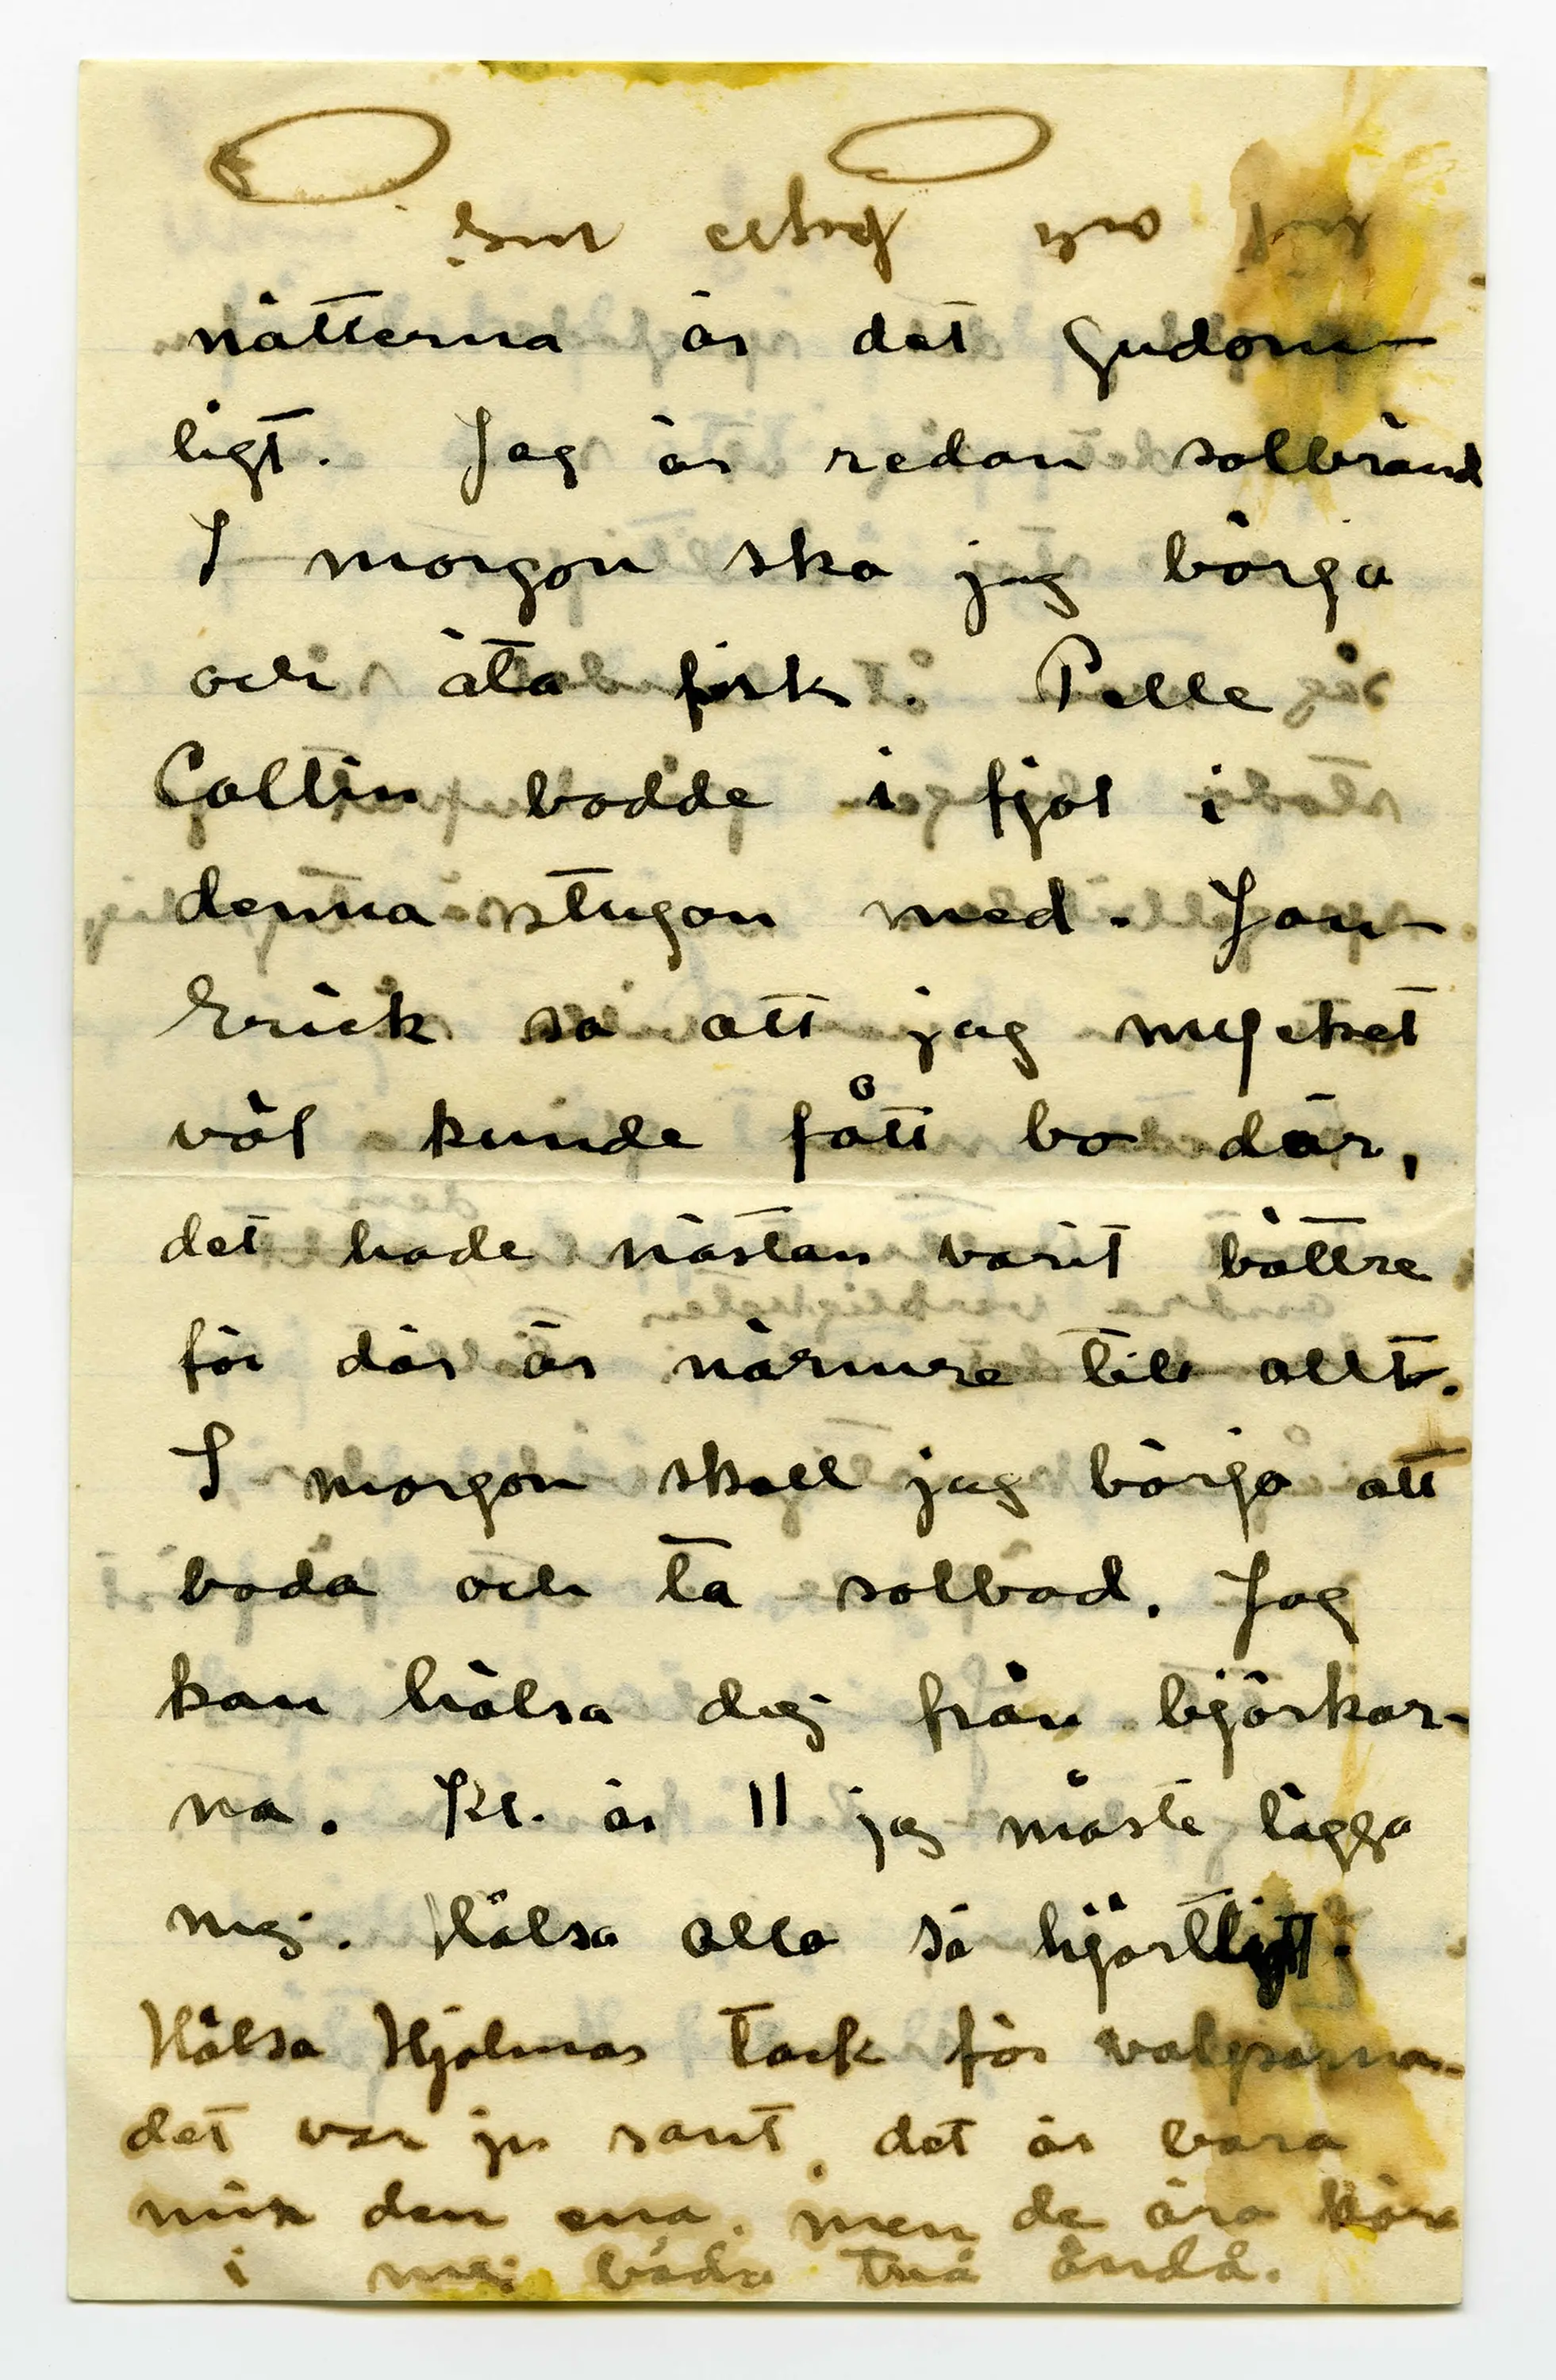 nätterna är det gudom-
ligt. Jag är redan solbränd
I morgon ska jag börja
och äta fisk. Pelle
Collin bodde i fjol i
denna stugan med. Jan-
Erick sa att jag mycket
väl kunde fått bo där,
det hade nästan varit bättre
för där är närmre till allt.
I morgon skall jag börja att
bada och ta solbad. Jag
kan hälsa dig från björkar-
na. Kl. är 11 jag måste lägga
mej. Hälsa alla så hjärtligt.
Hälsa Hjalmar tack för
det var ju sant, det är bara
den ena, men de äro kära
i mej båda två ändå.